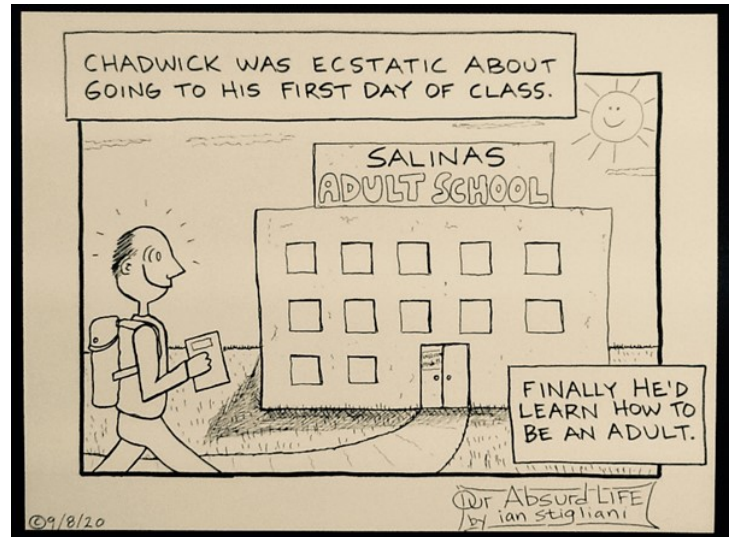 CHADWICK WAS ECSTATIC ABOUT
GOING TO HIS FIRST DAY OF CLASS.
SALINAS
ADULT SCHOOL
FINALLY HE'D
LEARN HOW TO
BE AN ADULT.
©9/8/20
Our Absurd LIFE
by ian stigliani